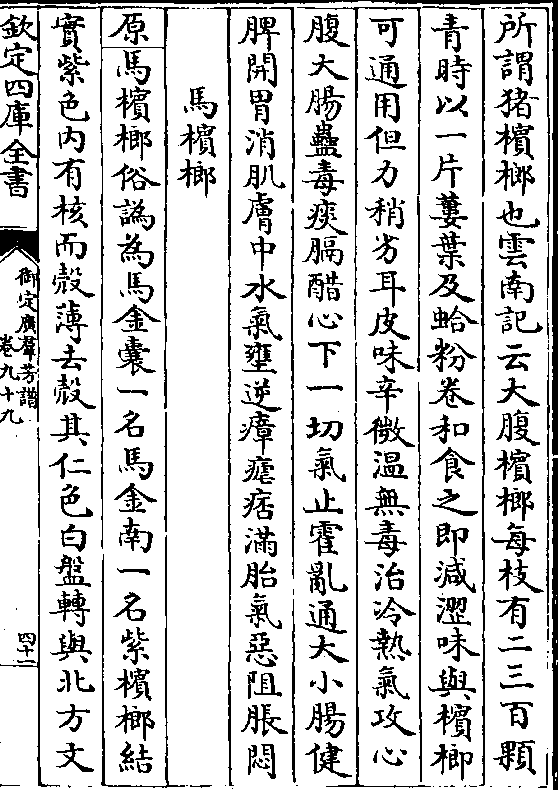 所謂猪檳榔也雲南記云大腹檳榔每枝有二三百顆
青時以一片蔞葉及蛤粉卷和食之即減澀味與檳榔
可通用但力稍劣耳皮味辛微温無毒治冷熱氣攻心
腹大腸蠱毒痰膈醋心下一切氣止霍亂通大小腸健
脾開胃消肌膚中水氣壅逆瘴瘧痞滿胎氣惡阻脹悶
馬檳榔
原馬檳榔俗譌為馬金囊一名馬金南一名紫檳榔結
實紫色内有核而殻薄去殻其仁色白盤轉與北方文
欽定四庫全書
御定廣羣芳譜
卷九十九
四十二